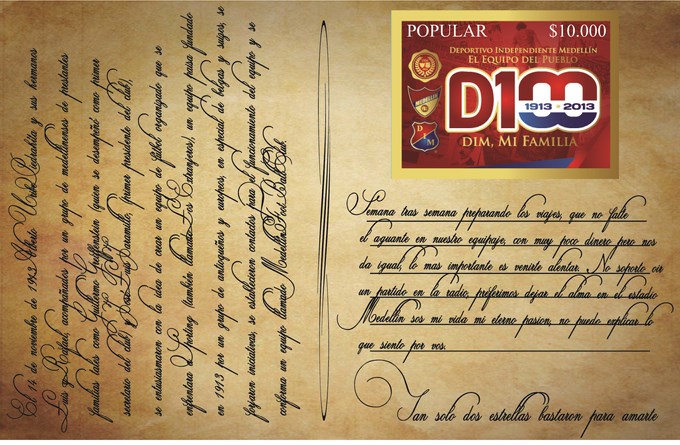 El 14 de noviembre de 1913 Alberto Uribe Piedrahíta y sus hermanos
Luis y Rafael, acompañados por un grupo de medellinenses de prestantes
familias tales como Guillermo Greiffenstein (quien se desempeñó como primer
secretario del club) y José Luis Jaramillo, primer presidente del club),
se entusiasmaron con la idea de crear un equipo de fútbol organizado que se
enfrentara Sporting (también llamado Los Extranjeros), un equipo paisa fundado
en 1913 por un grupo de antioqueños y europeos, en especial de belgas y suizos, se
forjaron iniciativas, se establecieron contactos para el funcionamiento del equipo y se
conforma un equipo llamado Medellín Foot Ball Club
POPULAR $10.000
Deportivo Independiente Medellín
El Equipo del Pueblo
D100
1913 2013
DIM, Mi Familia
MEDELLIN
D I M
Semana tras semana preparando los viajes, que no falte
el aguante en nuestro equipaje, con muy poco dinero pero nos
da igual, lo mas importante es venirte alentar. No soporto oir
un partido en la radio, preferimos dejar el alma en el estadio
Medellin sos mi vida mi eterno pasion, no puedo explicar lo
que siento por vos.
Tan solo dos estrellas bastaron para amarte